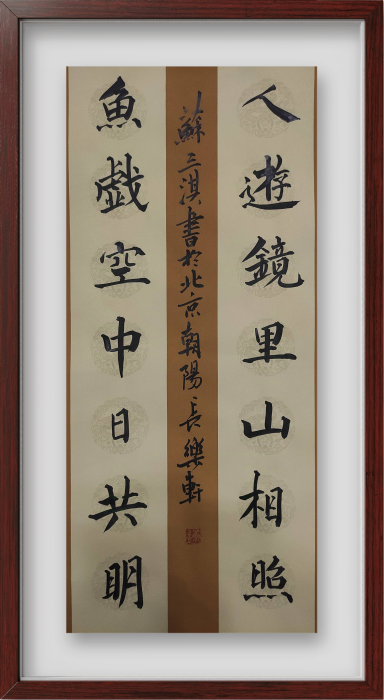 人遊鏡里山相照
魚戯空中日共明
蘇三淇書於北京朝陽長樂軒